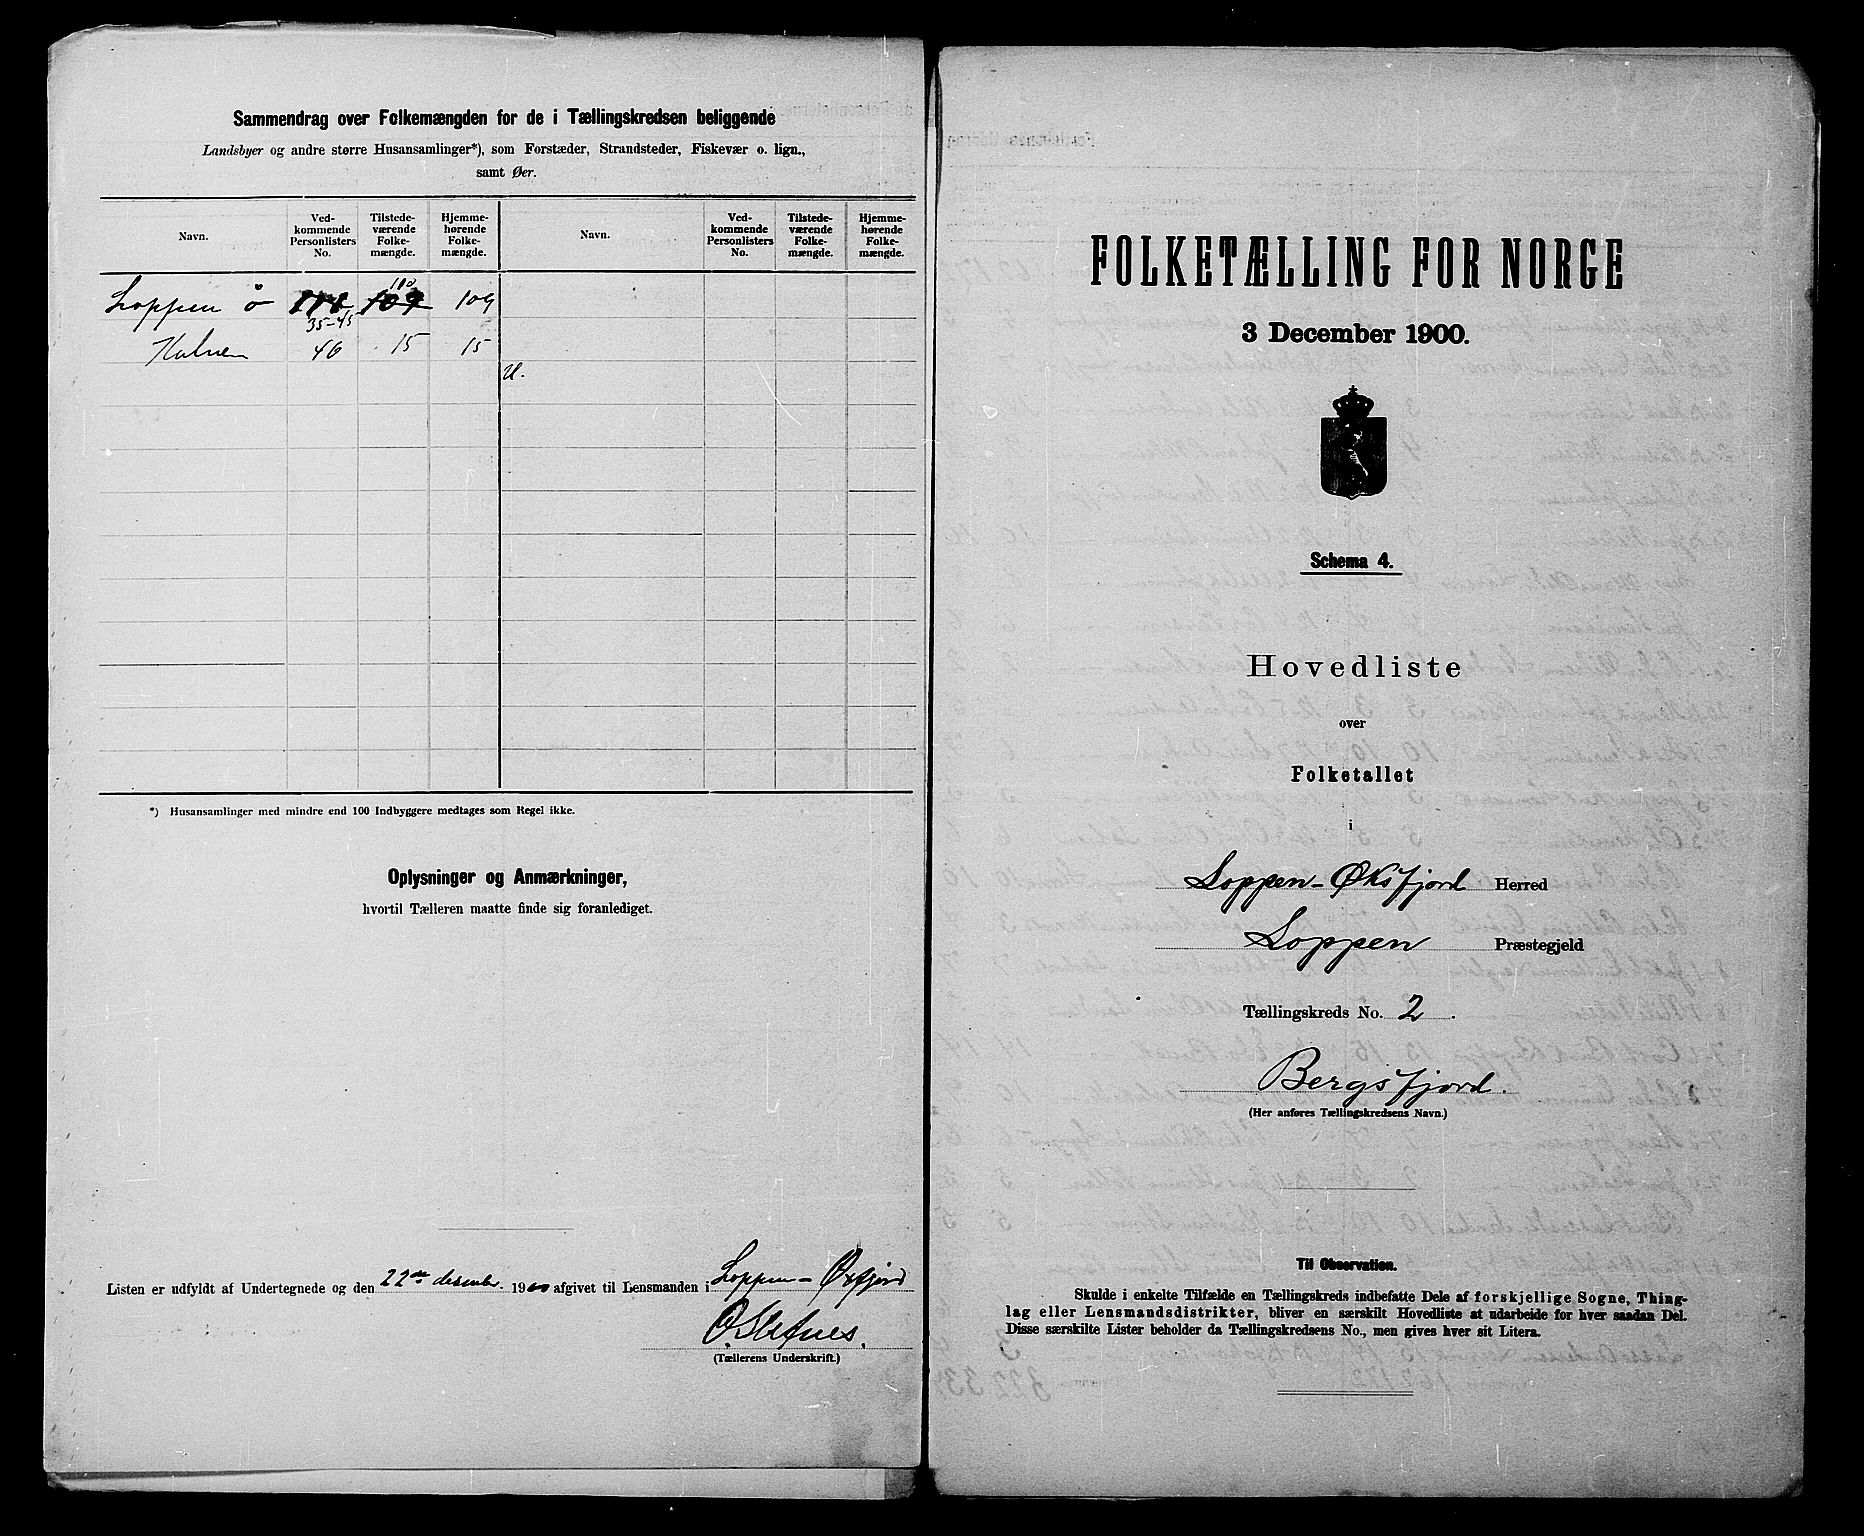 Sammendrag over Folkemængden for de i Tællingskredsen beliggende
Landsbyer og andre større Husansamlinger*), som Forstæder, Strandsteder, Fiskevær o. lign.,
samt Øer.
Navn. Ved-kommende Personlisters No. Tilstede-værende Folke-mængde. Hjemme-hørende Folke-mængde. Navn. Ved-kommende Personlisters No. Tilstede-værende Folke-mængde. Hjemme-hørende Folke-mængde.
110
Loppen ø 109 109
35-45
46 15 15
*) Husansamlinger med mindre end 100 Indbyggere medtages som Regel ikke.
Oplysninger og Anmærkninger,
hvortil Tælleren maatte finde sig foranlediget.
Listen er udfyldt af Undertegnede og den 22de desember 1900 afgivet til Lensmanden i Loppen-Øxfjord
(Tællerens Underskrift.)
FOLKETÆLLING FOR NORGE
3 December 1900.
Schema 4.
Hovedliste
over
Folketallet
i
Loppen-Øksfjord Herred
Loppen Præstegjeld
Tællingskreds No. 2.
Bergsfjord.
(Her anføres Tællingskredsens Navn.)
Til Observation.
Skulde i enkelte Tilfælde en Tællingskreds indbefatte Dele af forskjellige Sogne, Thing-
lag eller Lensmandsdistrikter, bliver en særskilt Hovedliste at udarbeide for hver saadan Del.
Disse særskilte Lister beholder da Tællingskredsens No., men gives hver sit Litera.